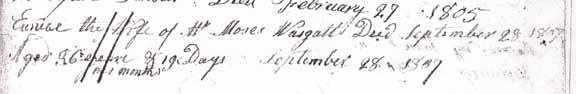 Died February 27 1805
Eunice the Wife of Mr Moses Wasgatt Died September 28 1817
Aged 26 years & 19 Days September 28 - 1817
months